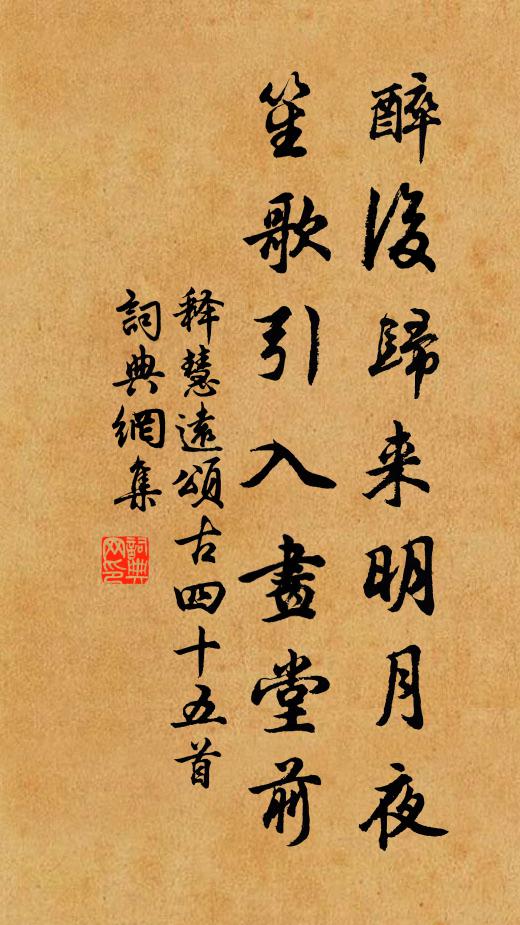 醉後歸来明月夜
笙歌引入畫堂前
释慧遠頌古四十五首
詞典網集
詞典
网印